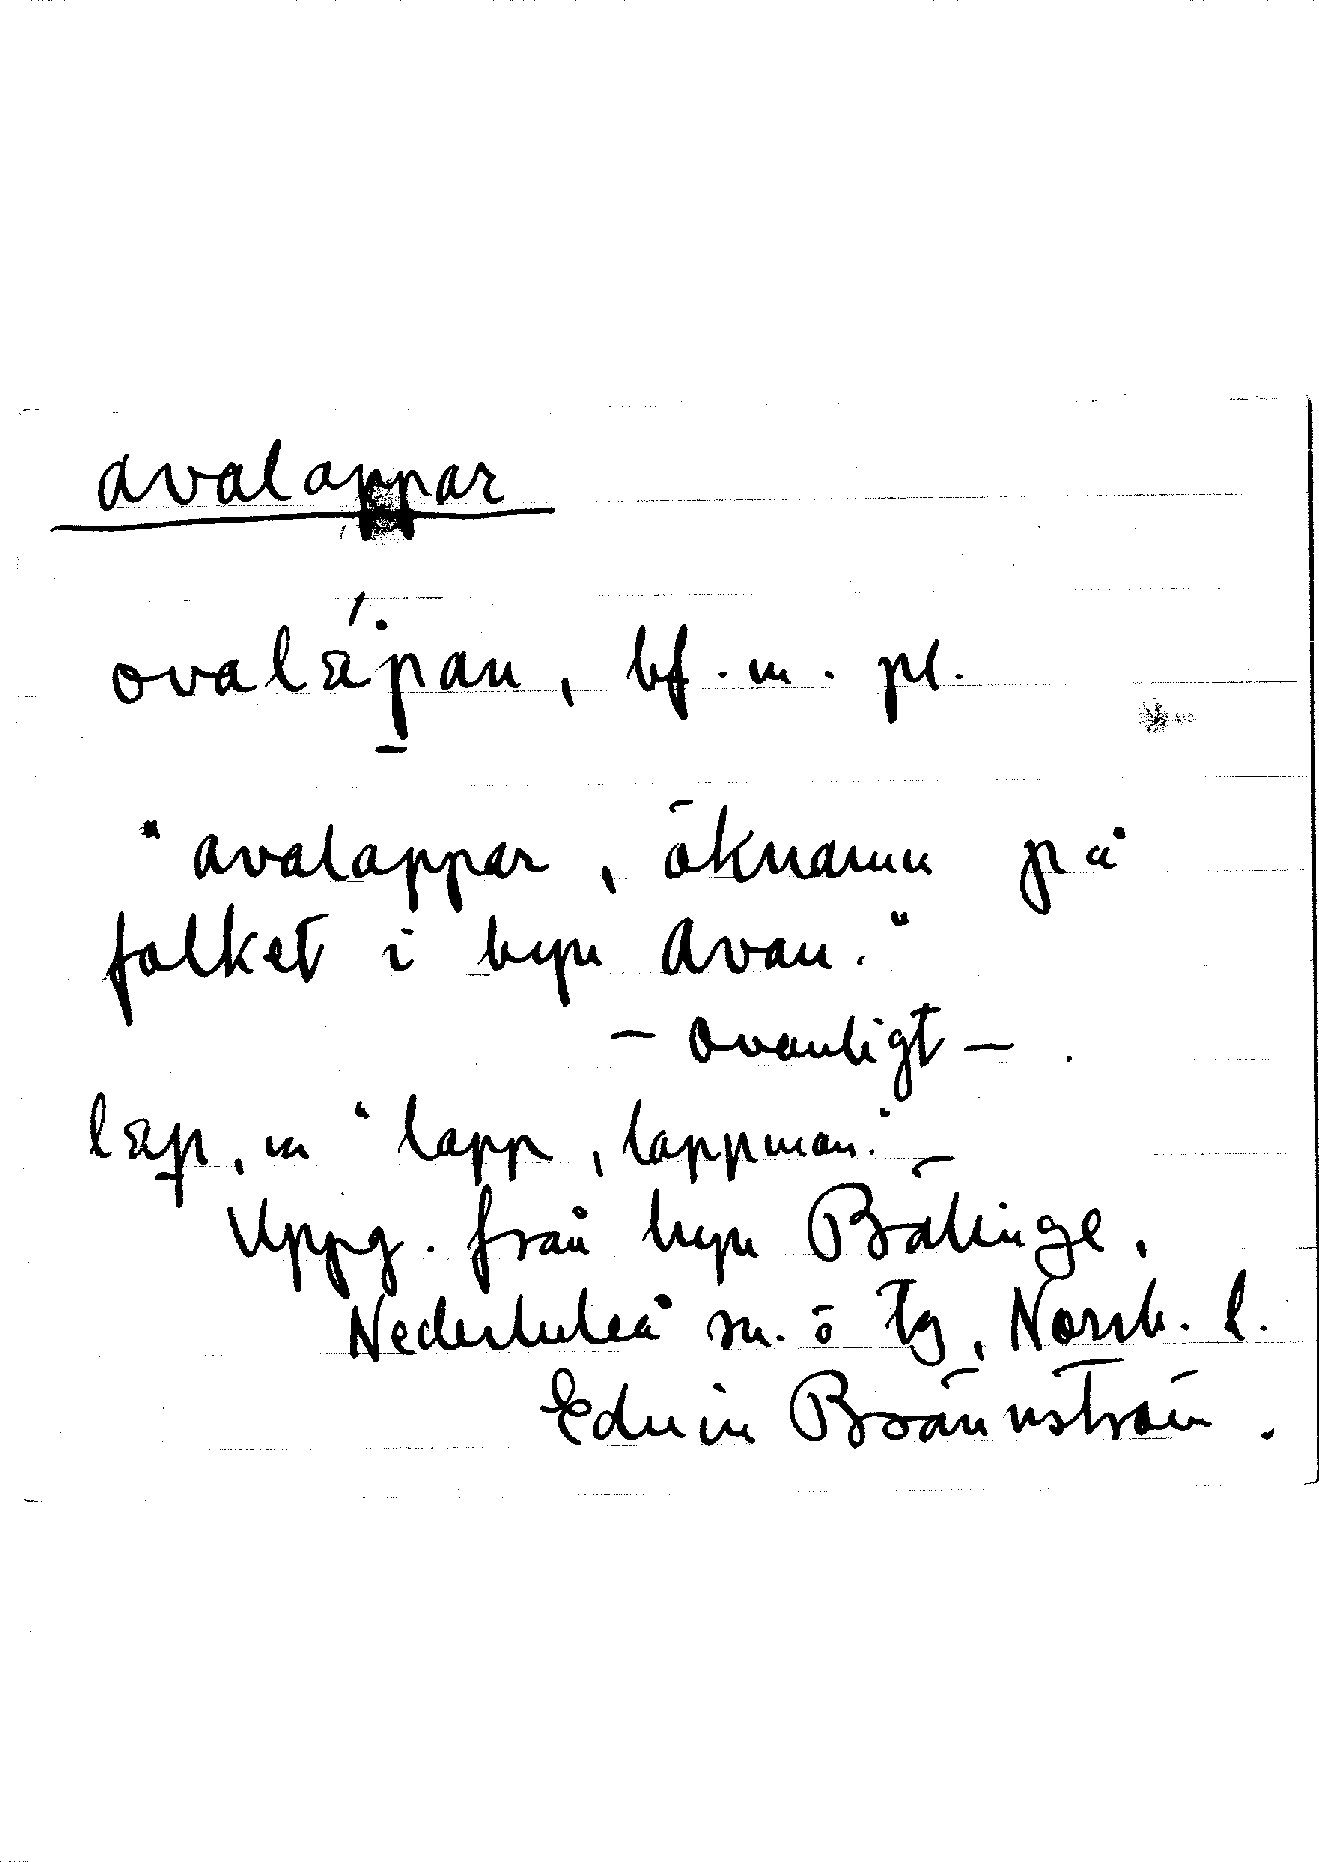 avalappar
ovalä́pan, bf. m. pl.
"avalappar, öknamn på
folket i byn Avan."
– Ovanligt – .
läp, m "lapp, lappman." –
Uppg. från byn Bälinge,
Nederluleå sn. ö tg, Norrb. l.
Edvin Brännström.